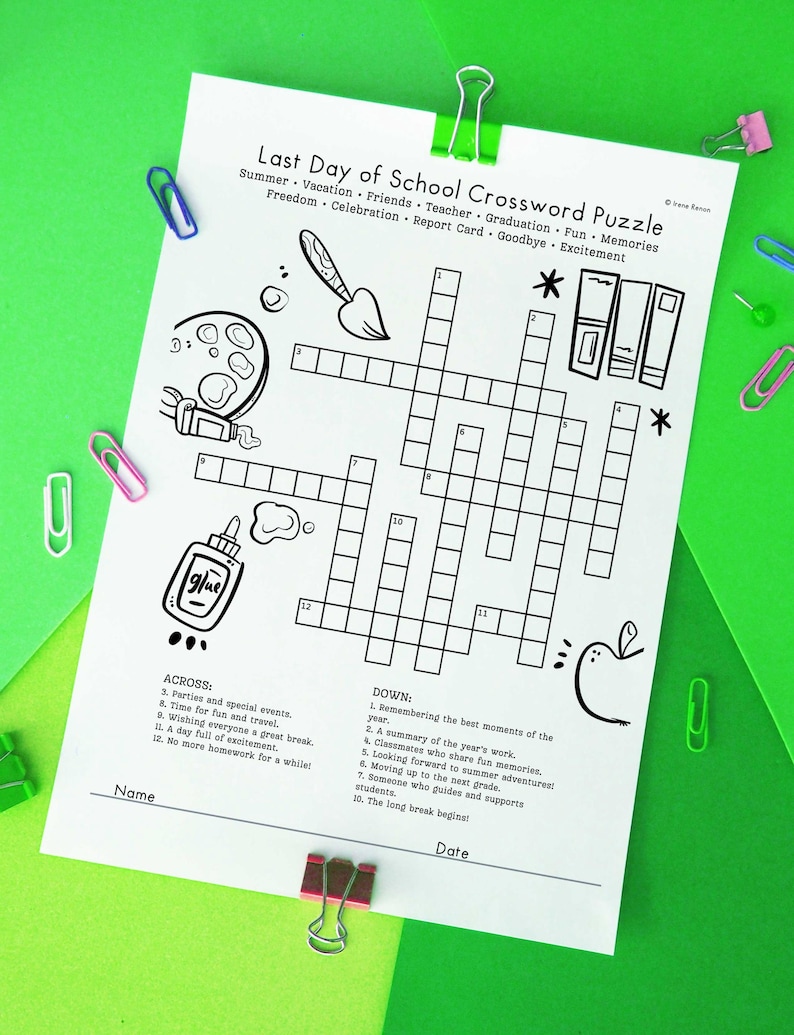 Last Day of School Crossword Puzzle
© Irene Renon
Summer • Vacation • Friends • Teacher • Graduation • Fun • Memories
Freedom • Celebration • Report Card • Goodbye • Excitement
1
2
3
4
5
6
7
8
9
10
11
12
glue
ACROSS:
3. Parties and special events.
8. Time for fun and travel.
9. Wishing everyone a great break.
11. A day full of excitement.
12. No more homework for a while!
DOWN:
1. Remembering the best moments of the
year.
2. A summary of the year's work.
4. Classmates who share fun memories.
5. Looking forward to summer adventures!
6. Moving up to the next grade.
7. Someone who guides and supports
students.
10. The long break begins!
Name
Date